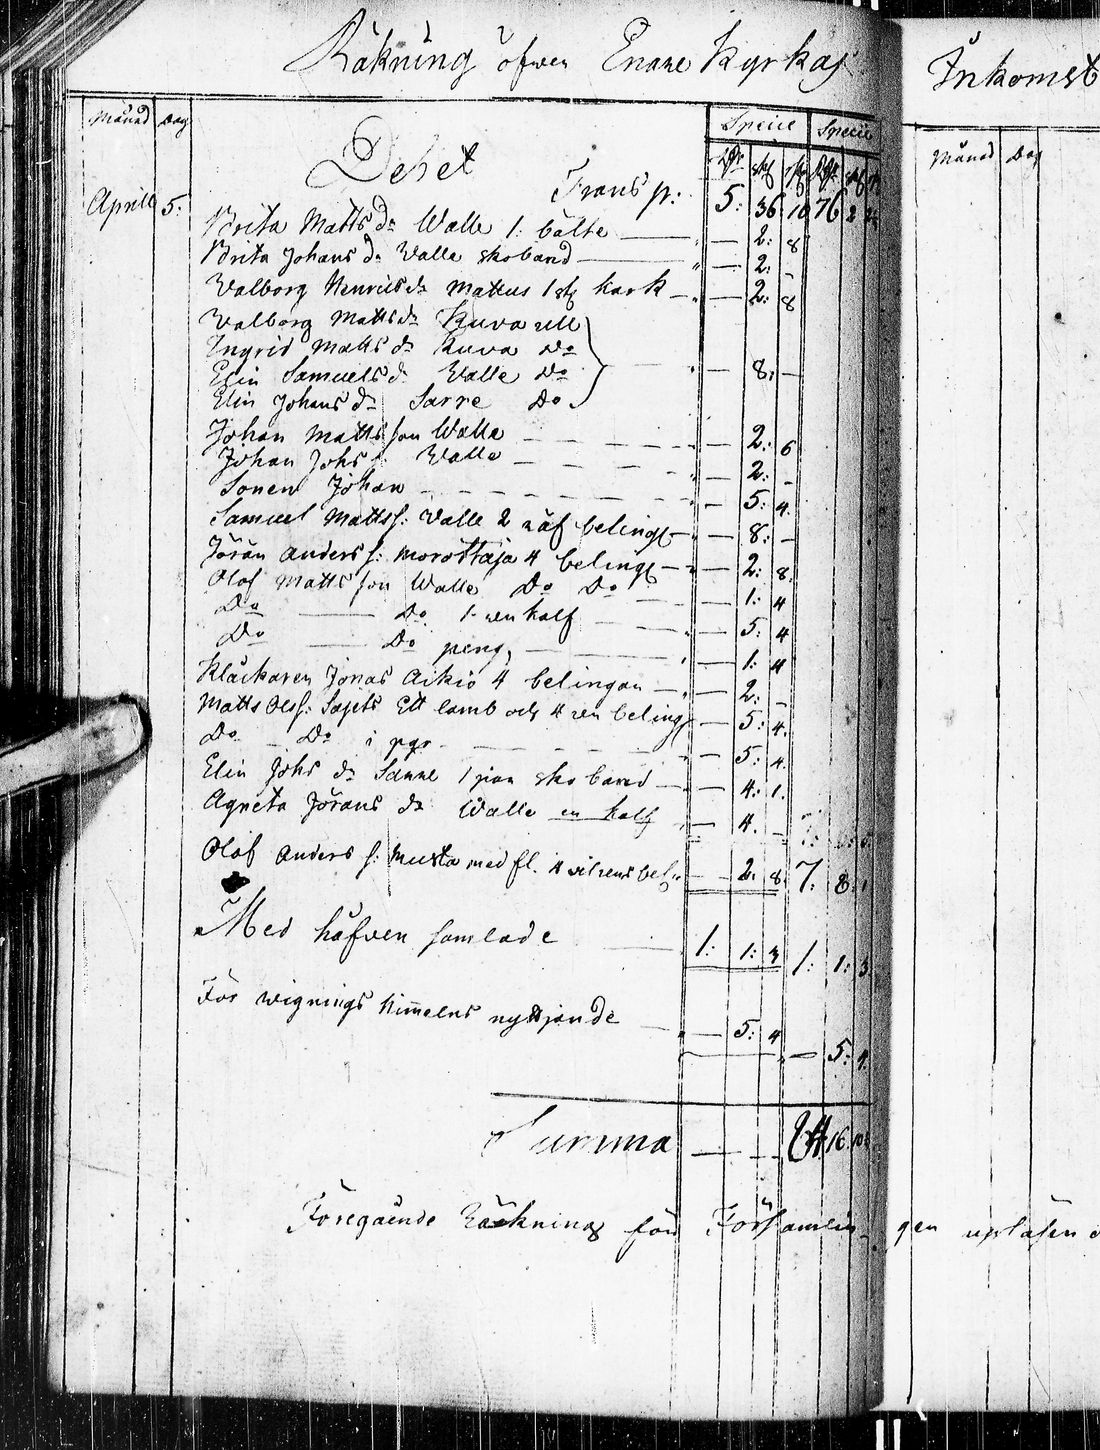 Räkning öfwer Enare Kyrkas Inkomst
Månad Dag Specie Specie Månad Dag
Debet
Transp: 5: 36 10 76 2
Aprill 5: Brita Matts dr Walle 1: bälte — 2: 8
Brita Johans dr Walle skoband — 2: -
Walborg Henrics dr Mattus 1 st kark — 2: 8
Walborg Matts dr Kuva ull
Ingrid Matts dr Kuva Do
Elin Samuels dr Walle Do — 8: -
Elin Johans dr Sarre Do
Johan Matts son Walle — 2: 6
Johan Johs s: Walle — 2: -
Sonen Johan — 5: 4
Samuel Matts s: Walle 2 näf belingr — 8: -
Jöran Anders s: Morottaja 4 belingr — 2: 8
Olof Matts son Walle Do Do — 1: 4
Do — Do 1 ren kalf — 5: 4
Do — Do peng, — 1: 4
Klåckaren Jonas Aikio 4 belingar — 2: -
Matts Olss: Sajets Ett lamb och 4 ren belingr — 5: 4
Do — Do i pgr — 5: 4
Elin Johs dr Sarre 1 par sko band — 4: 1
Agneta Jörans dr Walle en kalf — 4: -
Olof Anders s: Musta med fl. 4 vilrens bel: — 2: 8 7: 8: 1
Med håfven samlade — 1: 1: 3 1: 1: 3
För wignings himmelns nyttjande — 5: 4
— 5: 4
Summa — 84 16 10
Föregående Räkning för Församlingen upläsen